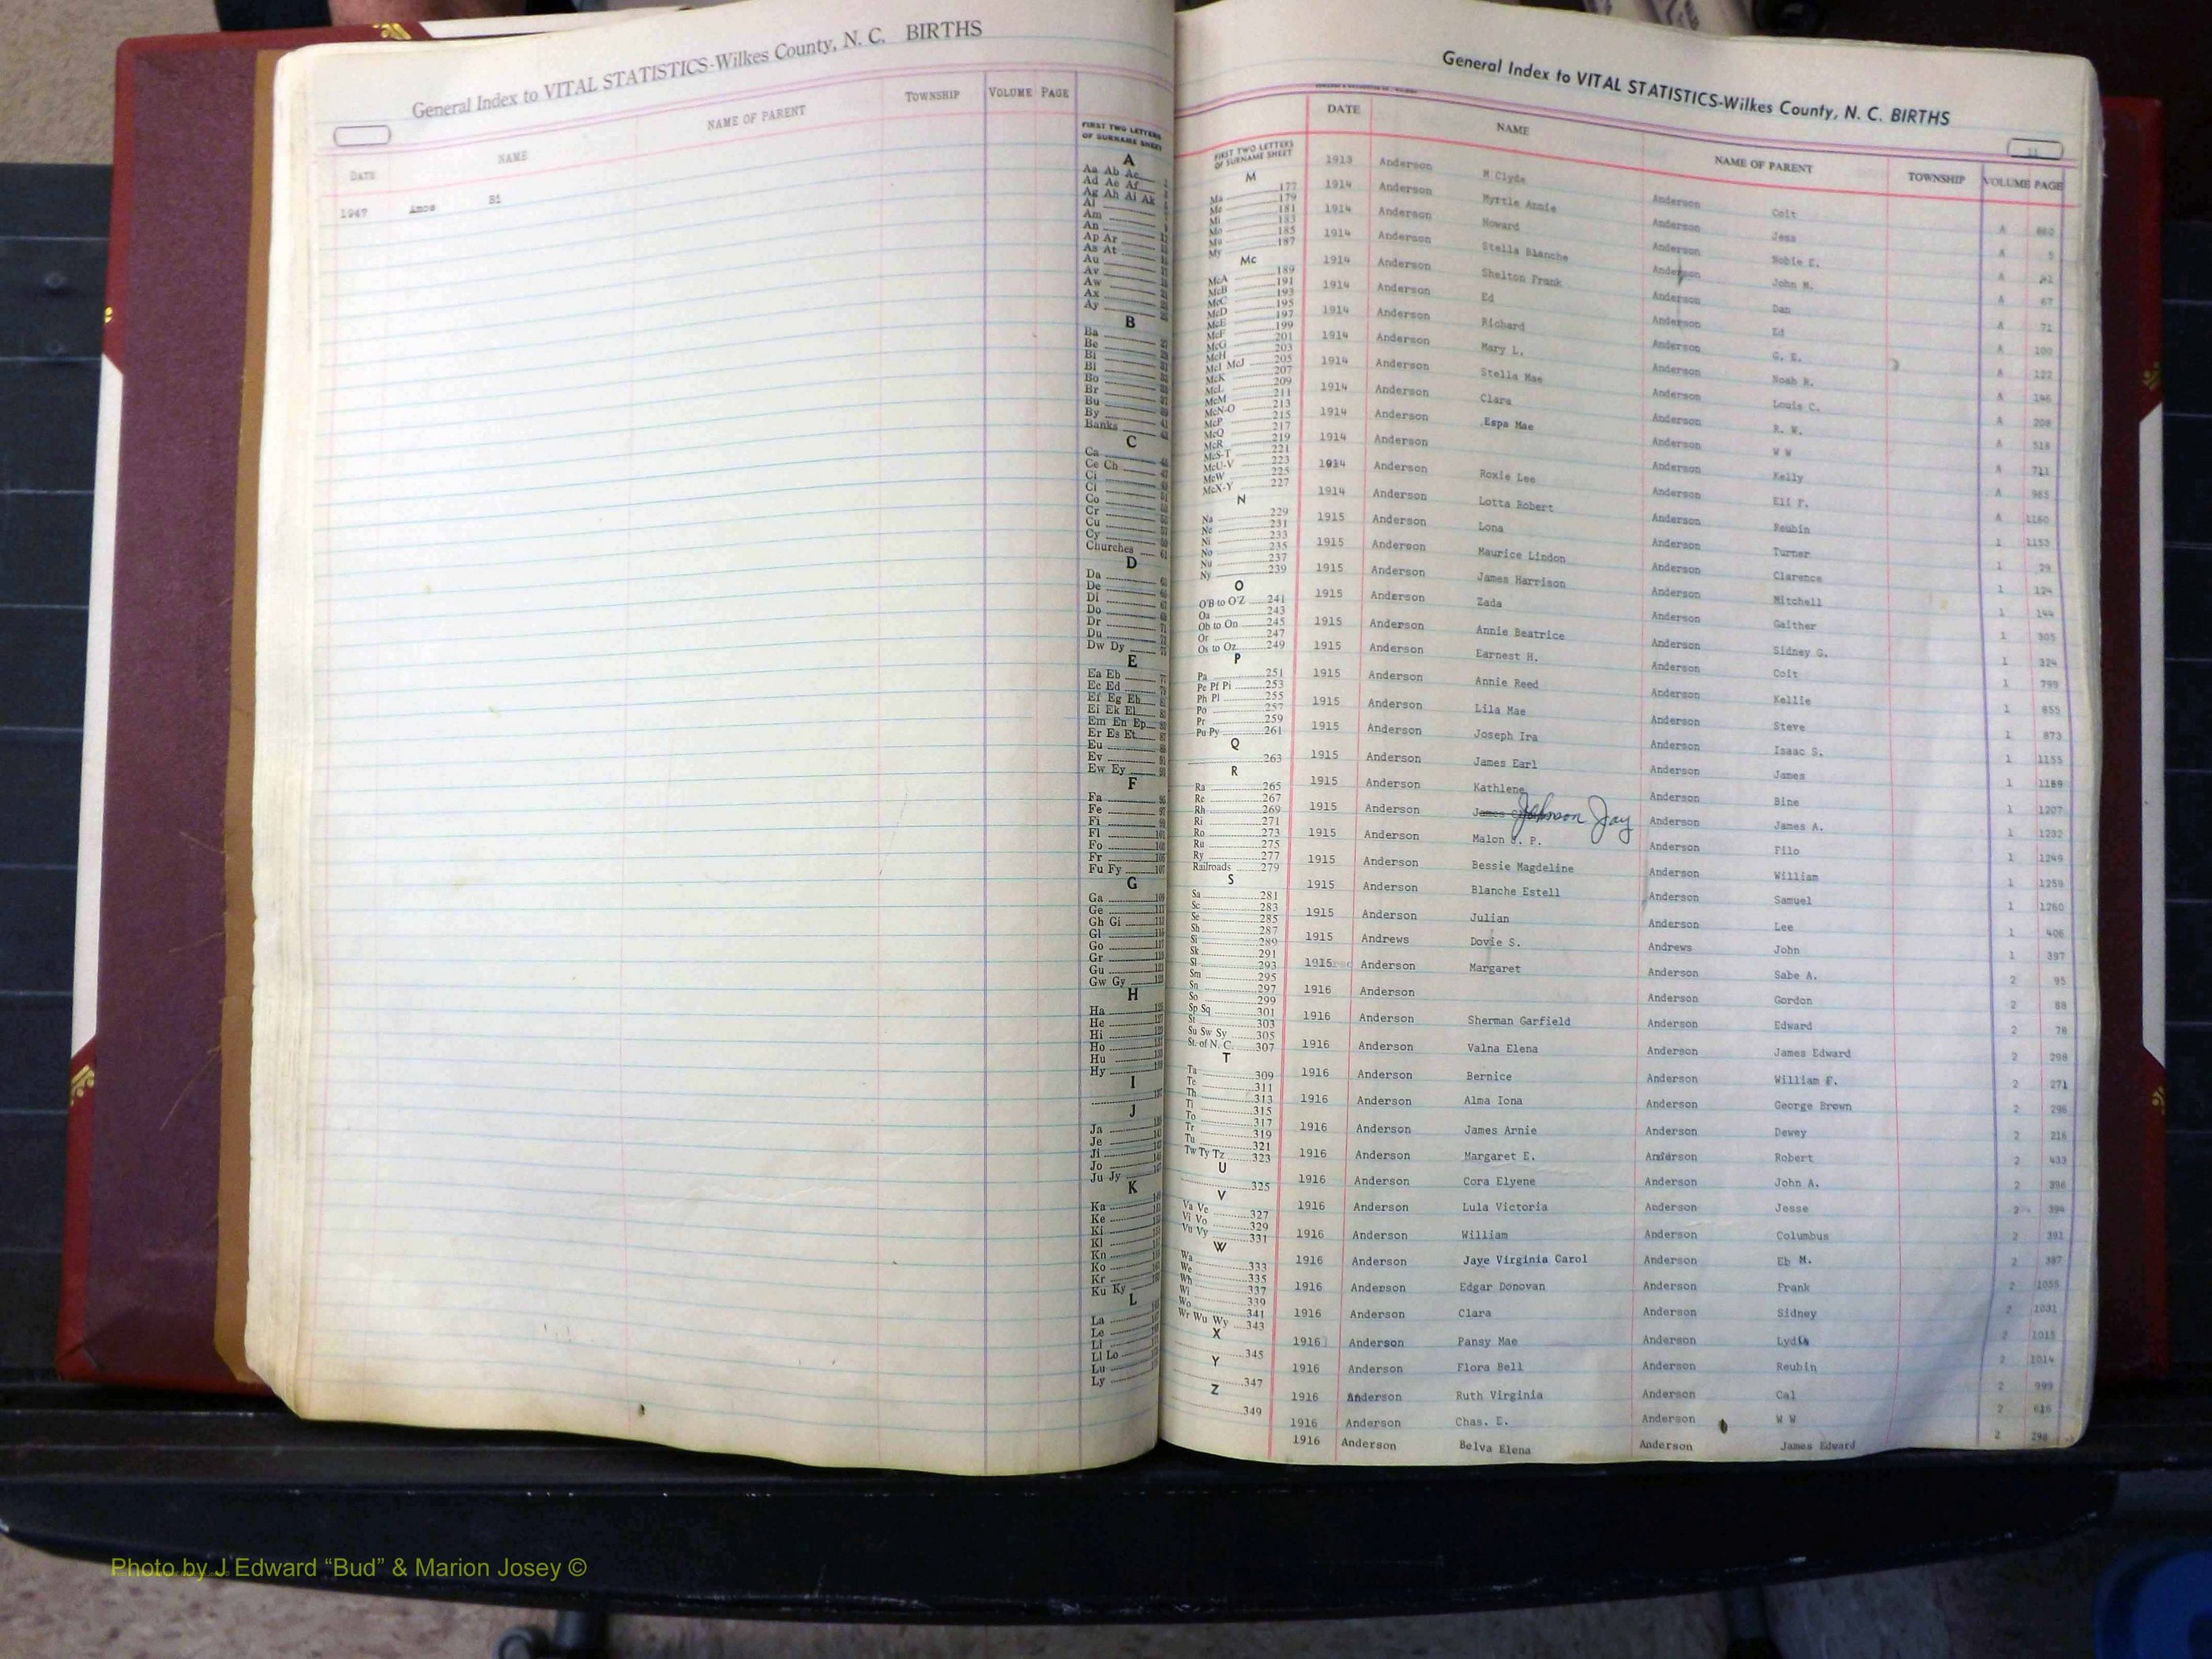 General Index to VITAL STATISTICS-Wilkes County, N. C. BIRTHS
DATE NAME NAME OF PARENT TOWNSHIP VOLUME PAGE
1947 Amos Bi
FIRST TWO LETTERS
OF SURNAME SHEET
A
Aa Ab Ac
Ad Ae Af
Ag Ah Ai Ak
Al
Am
An
Ap Ar
As At
Au
Av
Aw
Ax
Ay
B
Ba
Be
Bi
Bl
Bo
Br
Bu
By
Banks
C
Ca
Ce Ch
Ci
Cl
Co
Cr
Cu
Cy
Churches
D
Da
De
Di
Do
Dr
Du
Dw Dy
E
Ea Eb
Ec Ed
Ef Eg Eh
Ei Ek El
Em En Ep
Er Es Et
Eu
Ev
Ew Ey
F
Fa
Fe
Fi
Fl
Fo
Fr
Fu Fy
G
Ga
Ge
Gh Gi
Gl
Go
Gr
Gu
Gw Gy
H
Ha
He
Hi
Ho
Hu
Hy
I
J
Ja
Je
Ji
Jo
Ju Jy
K
Ka
Ke
Ki
Kl
Kn
Ko
Kr
Ku Ky
L
La
Le
Li
Ll Lo
Lu
Ly
General Index to VITAL STATISTICS-Wilkes County, N. C. BIRTHS
11
FIRST TWO LETTERS
OF SURNAME SHEET
M
Ma 177
Me 179
Mi 181
Mo 183
Mu 185
My 187
Mc
McA 189
McB 191
McC 193
McD 195
McE 197
McF 199
McG 201
McH 203
McI McJ 205
McK 207
McL 209
McM 211
McN-O 213
McP 215
McQ 217
McR 219
McS-T 221
McU-V 223
McW 225
McX-Y 227
N
Na 229
Ne 231
Ni 233
No 235
Nu 237
Ny 239
O
O'B to O'Z 241
Oa 243
Ob to On 245
Or 247
Os to Oz 249
P
Pa 251
Pe Pf Pi 253
Ph Pl 255
Po 257
Pr 259
Pu Py 261
Q
263
R
Ra 265
Re 267
Rh 269
Ri 271
Ro 273
Ru 275
Ry 277
Railroads 279
S
Sa 281
Sc 283
Se 285
Sh 287
Si 289
Sk 291
Sl 293
Sm 295
Sn 297
So 299
Sp Sq 301
St 303
Su Sw Sy 305
St. of N. C. 307
T
Ta 309
Te 311
Th 313
Ti 315
To 317
Tr 319
Tu 321
Tw Ty Tz 323
U
325
V
Va Ve 327
Vi Vo 329
Vu Vy 331
W
Wa 333
We 335
Wh 337
Wi 339
Wo 341
Wr Wu Wy 343
X
345
Y
347
Z
349
DATE NAME NAME OF PARENT TOWNSHIP VOLUME PAGE
1913 Anderson M Clyde Anderson Coit A 860
1914 Anderson Myrtle Annie Anderson Jess A 5
1914 Anderson Howard Anderson Nobie E. A
1914 Anderson Stella Blanche Anderson John M. A 67
1914 Anderson Shelton Frank Anderson Dan A 71
1914 Anderson Ed Anderson Ed A 100
1914 Anderson Richard Anderson G. E. A 122
1914 Anderson Mary L. Anderson Noah R. A 146
1914 Anderson Stella Mae Anderson Louis C. A 208
1914 Anderson Clara Anderson R. W. A 518
1914 Anderson Espa Mae Anderson W W A 711
1914 Anderson Anderson Kelly A 965
1914 Anderson Roxie Lee Anderson Eli F. A 1160
1914 Anderson Lotta Robert Anderson Reubin 1 1153
1915 Anderson Lona Anderson Turner 1 29
1915 Anderson Maurice Lindon Anderson Clarence 1 124
1915 Anderson James Harrison Anderson Mitchell 1 144
1915 Anderson Zada Anderson Gaither 1 305
1915 Anderson Annie Beatrice Anderson Sidney G. 1 324
1915 Anderson Earnest H. Anderson Coit 1 799
1915 Anderson Annie Reed Anderson Kellie 1 855
1915 Anderson Lila Mae Anderson Steve 1 873
1915 Anderson Joseph Ira Anderson Isaac S. 1 1155
1915 Anderson James Earl Anderson James 1 1169
1915 Anderson Kathlene Anderson Bine 1 1207
1915 Anderson James Johnson Jay Anderson James A. 1 1232
1915 Anderson Malon J. P. Anderson Filo 1 1249
1915 Anderson Bessie Magdeline Anderson William 1 1259
1915 Anderson Blanche Estell Anderson Samuel 1 1260
1915 Anderson Julian Anderson Lee 1 406
1915 Andrews Dovie S. Andrews John 1 397
1915 Anderson Margaret Anderson Sabe A. 2 95
1916 Anderson Anderson Gordon 2 88
1916 Anderson Sherman Garfield Anderson Edward 2 78
1916 Anderson Valna Elena Anderson James Edward 2 298
1916 Anderson Bernice Anderson William F. 2 271
1916 Anderson Alma Iona Anderson George Brown 2 296
1916 Anderson James Arnie Anderson Dewey 2 216
1916 Anderson Margaret E. Anderson Robert 2 433
1916 Anderson Cora Elyene Anderson John A. 2 396
1916 Anderson Lula Victoria Anderson Jesse 2 394
1916 Anderson William Anderson Columbus 2 391
1916 Anderson Jaye Virginia Carol Anderson Eb M. 2 387
1916 Anderson Edgar Donovan Anderson Frank 2 1055
1916 Anderson Clara Anderson Sidney 2 1031
1916 Anderson Pansy Mae Anderson Lydia 2 1015
1916 Anderson Flora Bell Anderson Reubin 2 1014
1916 Anderson Ruth Virginia Anderson Cal 2 999
1916 Anderson Chas. E. Anderson W W 2 616
1916 Anderson Belva Elena Anderson James Edward 2 294
Photo by J Edward “Bud” & Marion Josey ©